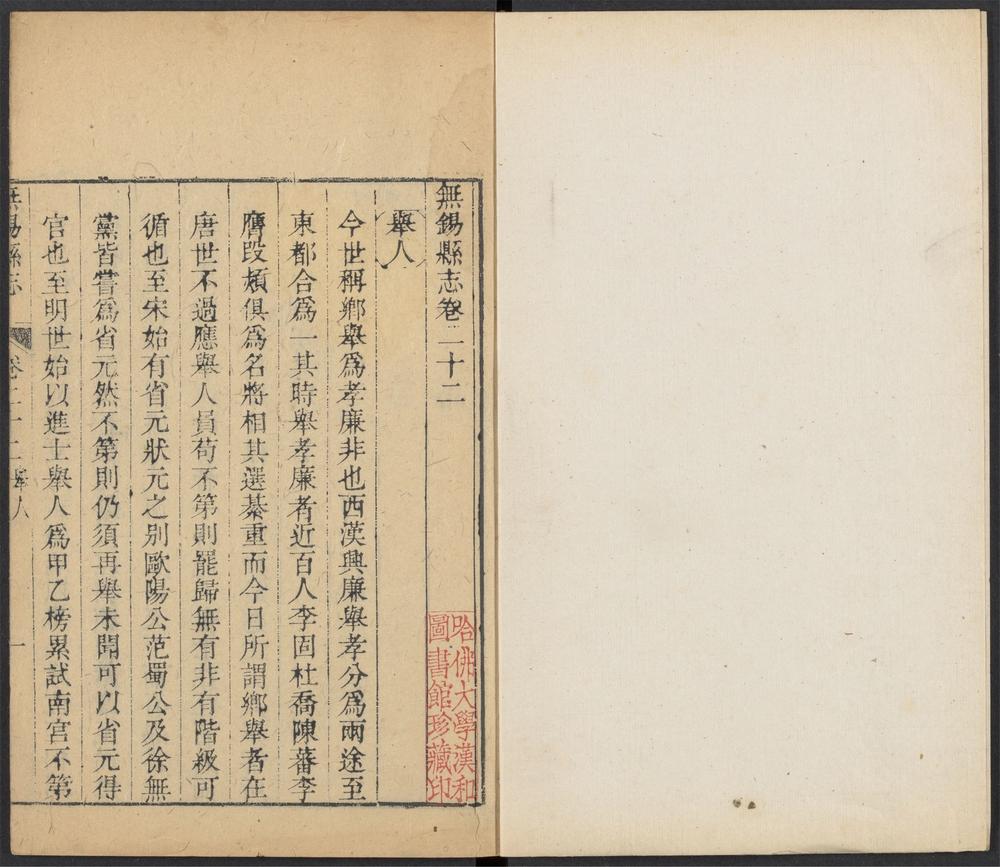 無錫縣志卷二十二
舉人
今世稱鄉舉爲孝廉非也西漢興廉舉孝分爲兩途至
東都合爲一其時舉孝廉者近百人李固杜喬陳蕃李
膺段熲俱爲名將相其選綦重而今日所謂鄉舉者在
唐世不過應舉人員苟不第則罷歸無有非有階級可
循也至宋始有省元狀元之別歐陽公范蜀公及徐無
黨皆嘗爲省元然不第則仍須再舉未聞可以省元得
官也至明世始以進士舉人爲甲乙榜累試南宮不第
無錫縣志 卷二十二 舉人 一
哈佛大學漢和
圖書館珍藏印